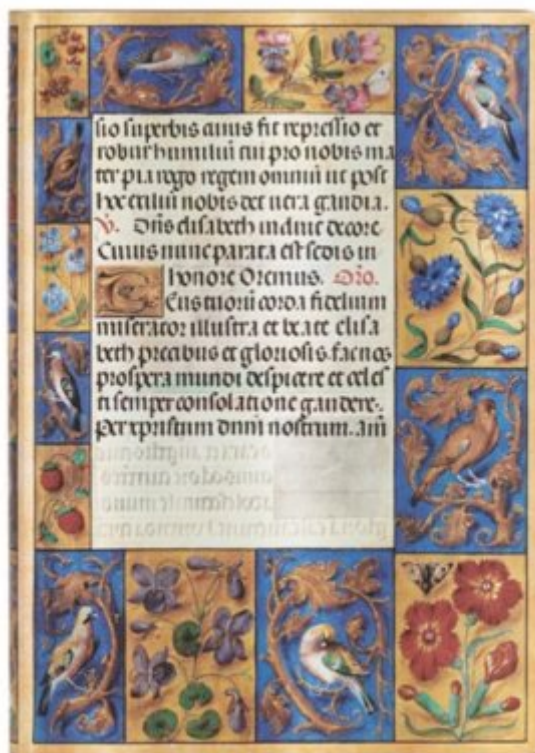 sio superbis cuius fit repressio et
robur humiliū tui pro nobis ma
ter pia rogo regem omniū ut post
hoc exiliū nobis det uera gaudia.
V. Dn̄s elisabeth induit decore
Cuius nunc parata est sedis in
honore Oremus. Or̄o.
Deus tuorū corda fidelium
miserator illustra et beate elisa
beth precibus et gloriosis fac nos
prospera mundi despicere et celes
ti semper consolatione gaudere.
Per xpristum dn̄m nostrum. am̄